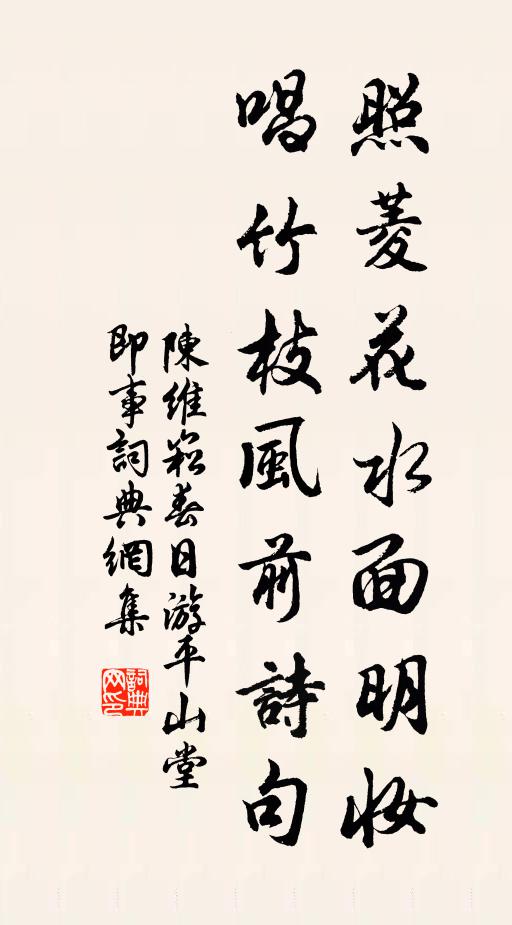 照菱花水面明妝
唱竹枝風前詩句
陳維崧春日游平山堂
即事詞典網集
詞典网印